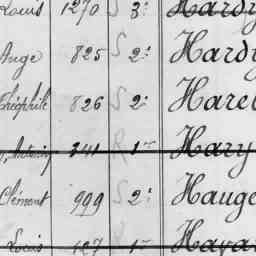 Louis 1270 S 3e Hardy
Ange 825 S 2e Hardy
Théophile 826 S 2e Harel
Antoine 241 R 1re Hary
Clément 999 S 2e Hauge
Louis 127 1re Hava